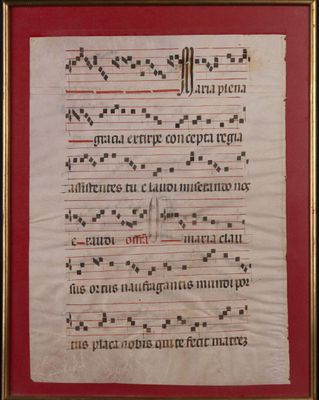 Maria plena
gracia extirpe concepta regia
assistentes tue laudi miserando nos
exaudi offa maria clau
sus ortus naufragantis mundi por
tus placa nobis qui te fecit matrez